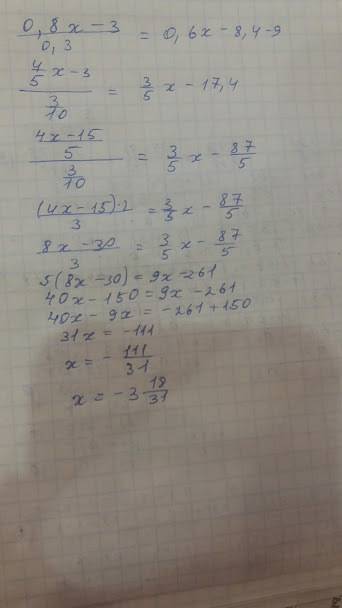 (0,8x - 3)/0,3 = 0,6x - 8,4 - 9
(4/5 x - 3)/(3/10) = 3/5 x - 17,4
((4x - 15)/5)/(3/10) = 3/5 x - 87/5
((4x - 15) · 2)/3 = 3/5 x - 87/5
(8x - 30)/3 = 3/5 x - 87/5
5(8x - 30) = 9x - 261
40x - 150 = 9x - 261
40x - 9x = -261 + 150
31x = -111
x = - 111/31
x = -3 18/31